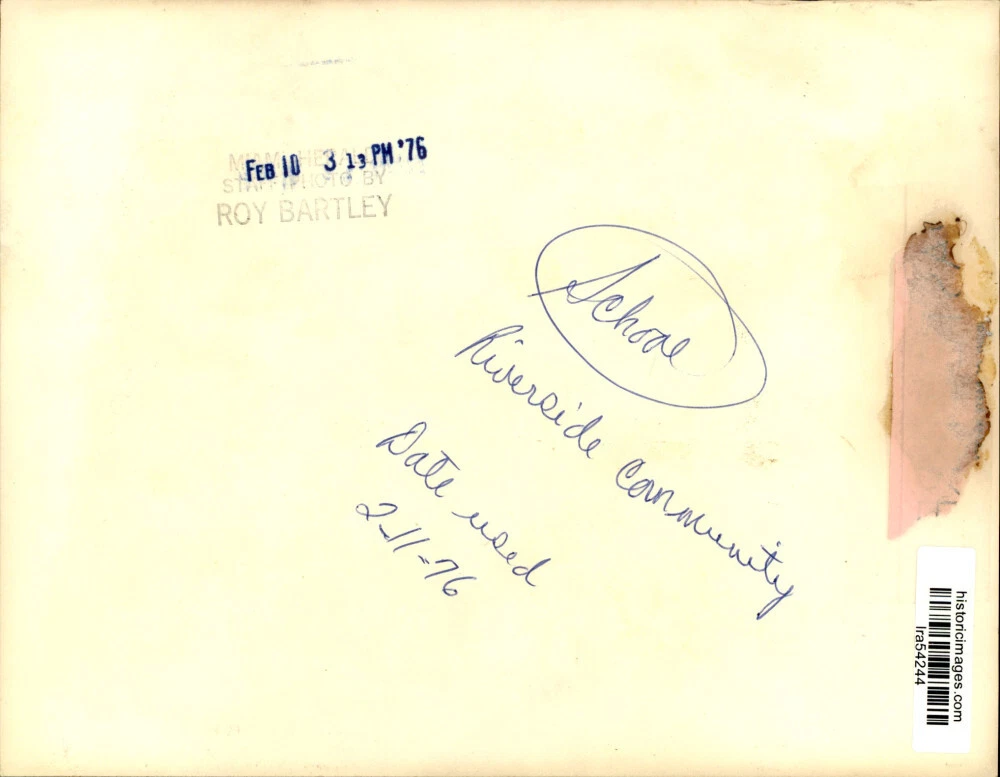 FEB 10 3 13 PM '76
MIAMI HERALD
STAFF PHOTO BY
ROY BARTLEY
School
Riverside Community
Date used
2-11-76
historicimages.com
lra54244